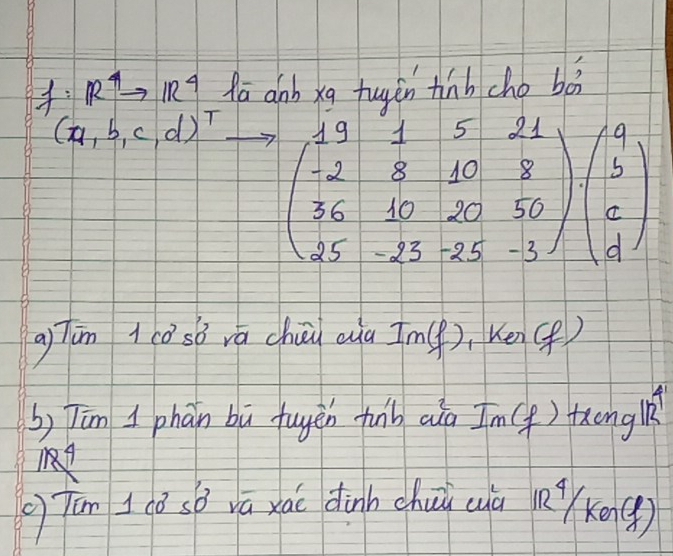 f: ℝ⁴ → ℝ⁴ là ánh xạ tuyến tính cho bởi
(a, b, c, d)ᵀ → 19 1 5 21 a
-2 8 10 8 . b
36 10 20 50 c
25 -23 -25 -3 d
a) Tìm 1 cơ sở và chiều của Im(f), Ker(f)
b) Tìm 1 phần bù tuyến tính của Im(f) trong ℝ⁴
ℝ⁴
c) Tìm 1 cơ sở và xác định chiều của ℝ⁴/Ker(f)